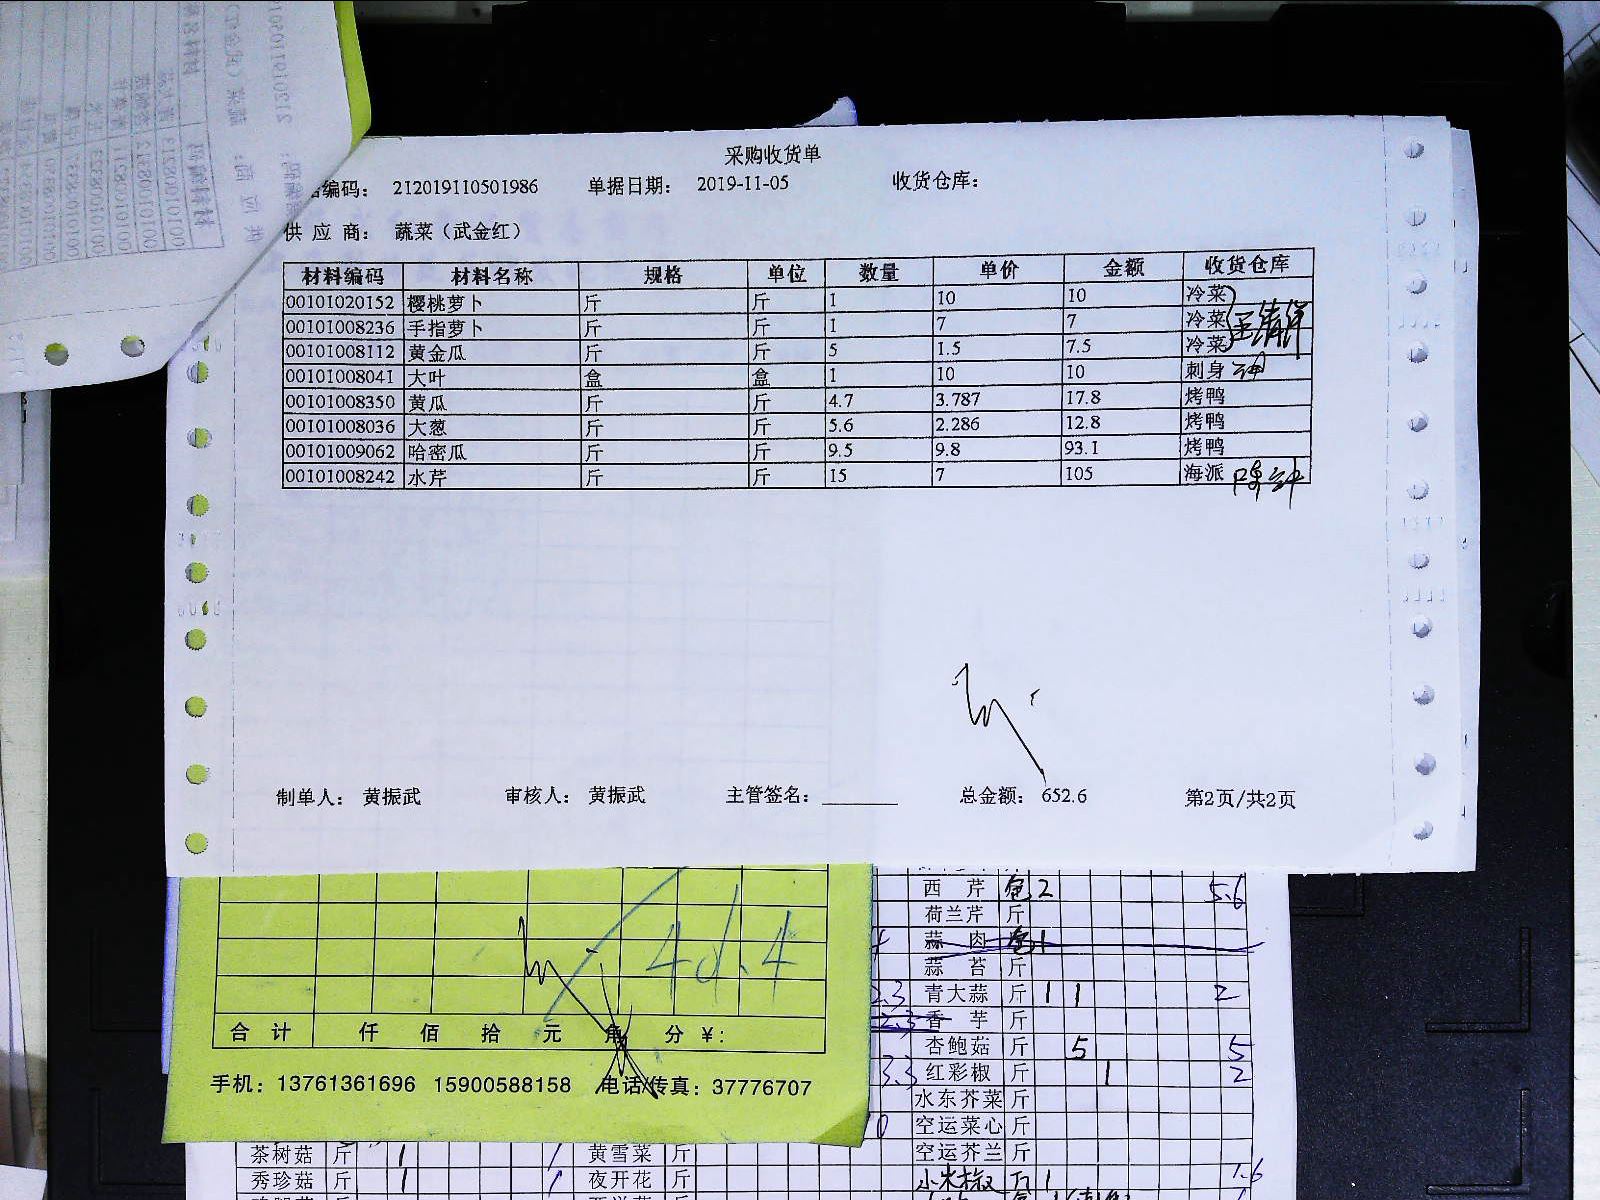 采购收货单
编码： 212019110501986 单据日期： 2019-11-05 收货仓库：
供应商： 蔬菜（武金红）
材料编码 材料名称 规格 单位 数量 单价 金额 收货仓库
00101020152 樱桃萝卜 斤 斤 1 10 10 冷菜
00101008236 手指萝卜 斤 斤 1 7 7 冷菜
00101008112 黄金瓜 斤 斤 5 1.5 7.5 冷菜
00101008041 大叶 盒 盒 1 10 10 刺身
00101008350 黄瓜 斤 斤 4.7 3.787 17.8 烤鸭
00101008036 大葱 斤 斤 5.6 2.286 12.8 烤鸭
00101009062 哈密瓜 斤 斤 9.5 9.8 93.1 烤鸭
00101008242 水芹 斤 斤 15 7 105 海派
制单人： 黄振武 审核人： 黄振武 主管签名： 总金额： 652.6 第2页/共2页
合计 仟 佰 拾 元 角 分 ¥：
手机：13761361696 15900588158 电话/传真：37776707
西芹 包 2 5.6
荷兰芹 斤
蒜肉 包 1
蒜苔 斤
青大蒜 斤 1 1 2
香芋 斤
杏鲍菇 斤 5 5
红彩椒 斤 1 2
水东芥菜 斤
空运菜心 斤
空运芥兰 斤
小米椒 斤 1 1.6
茶树菇 斤 1 1 黄雪菜 斤
秀珍菇 斤 1 1 夜开花 斤